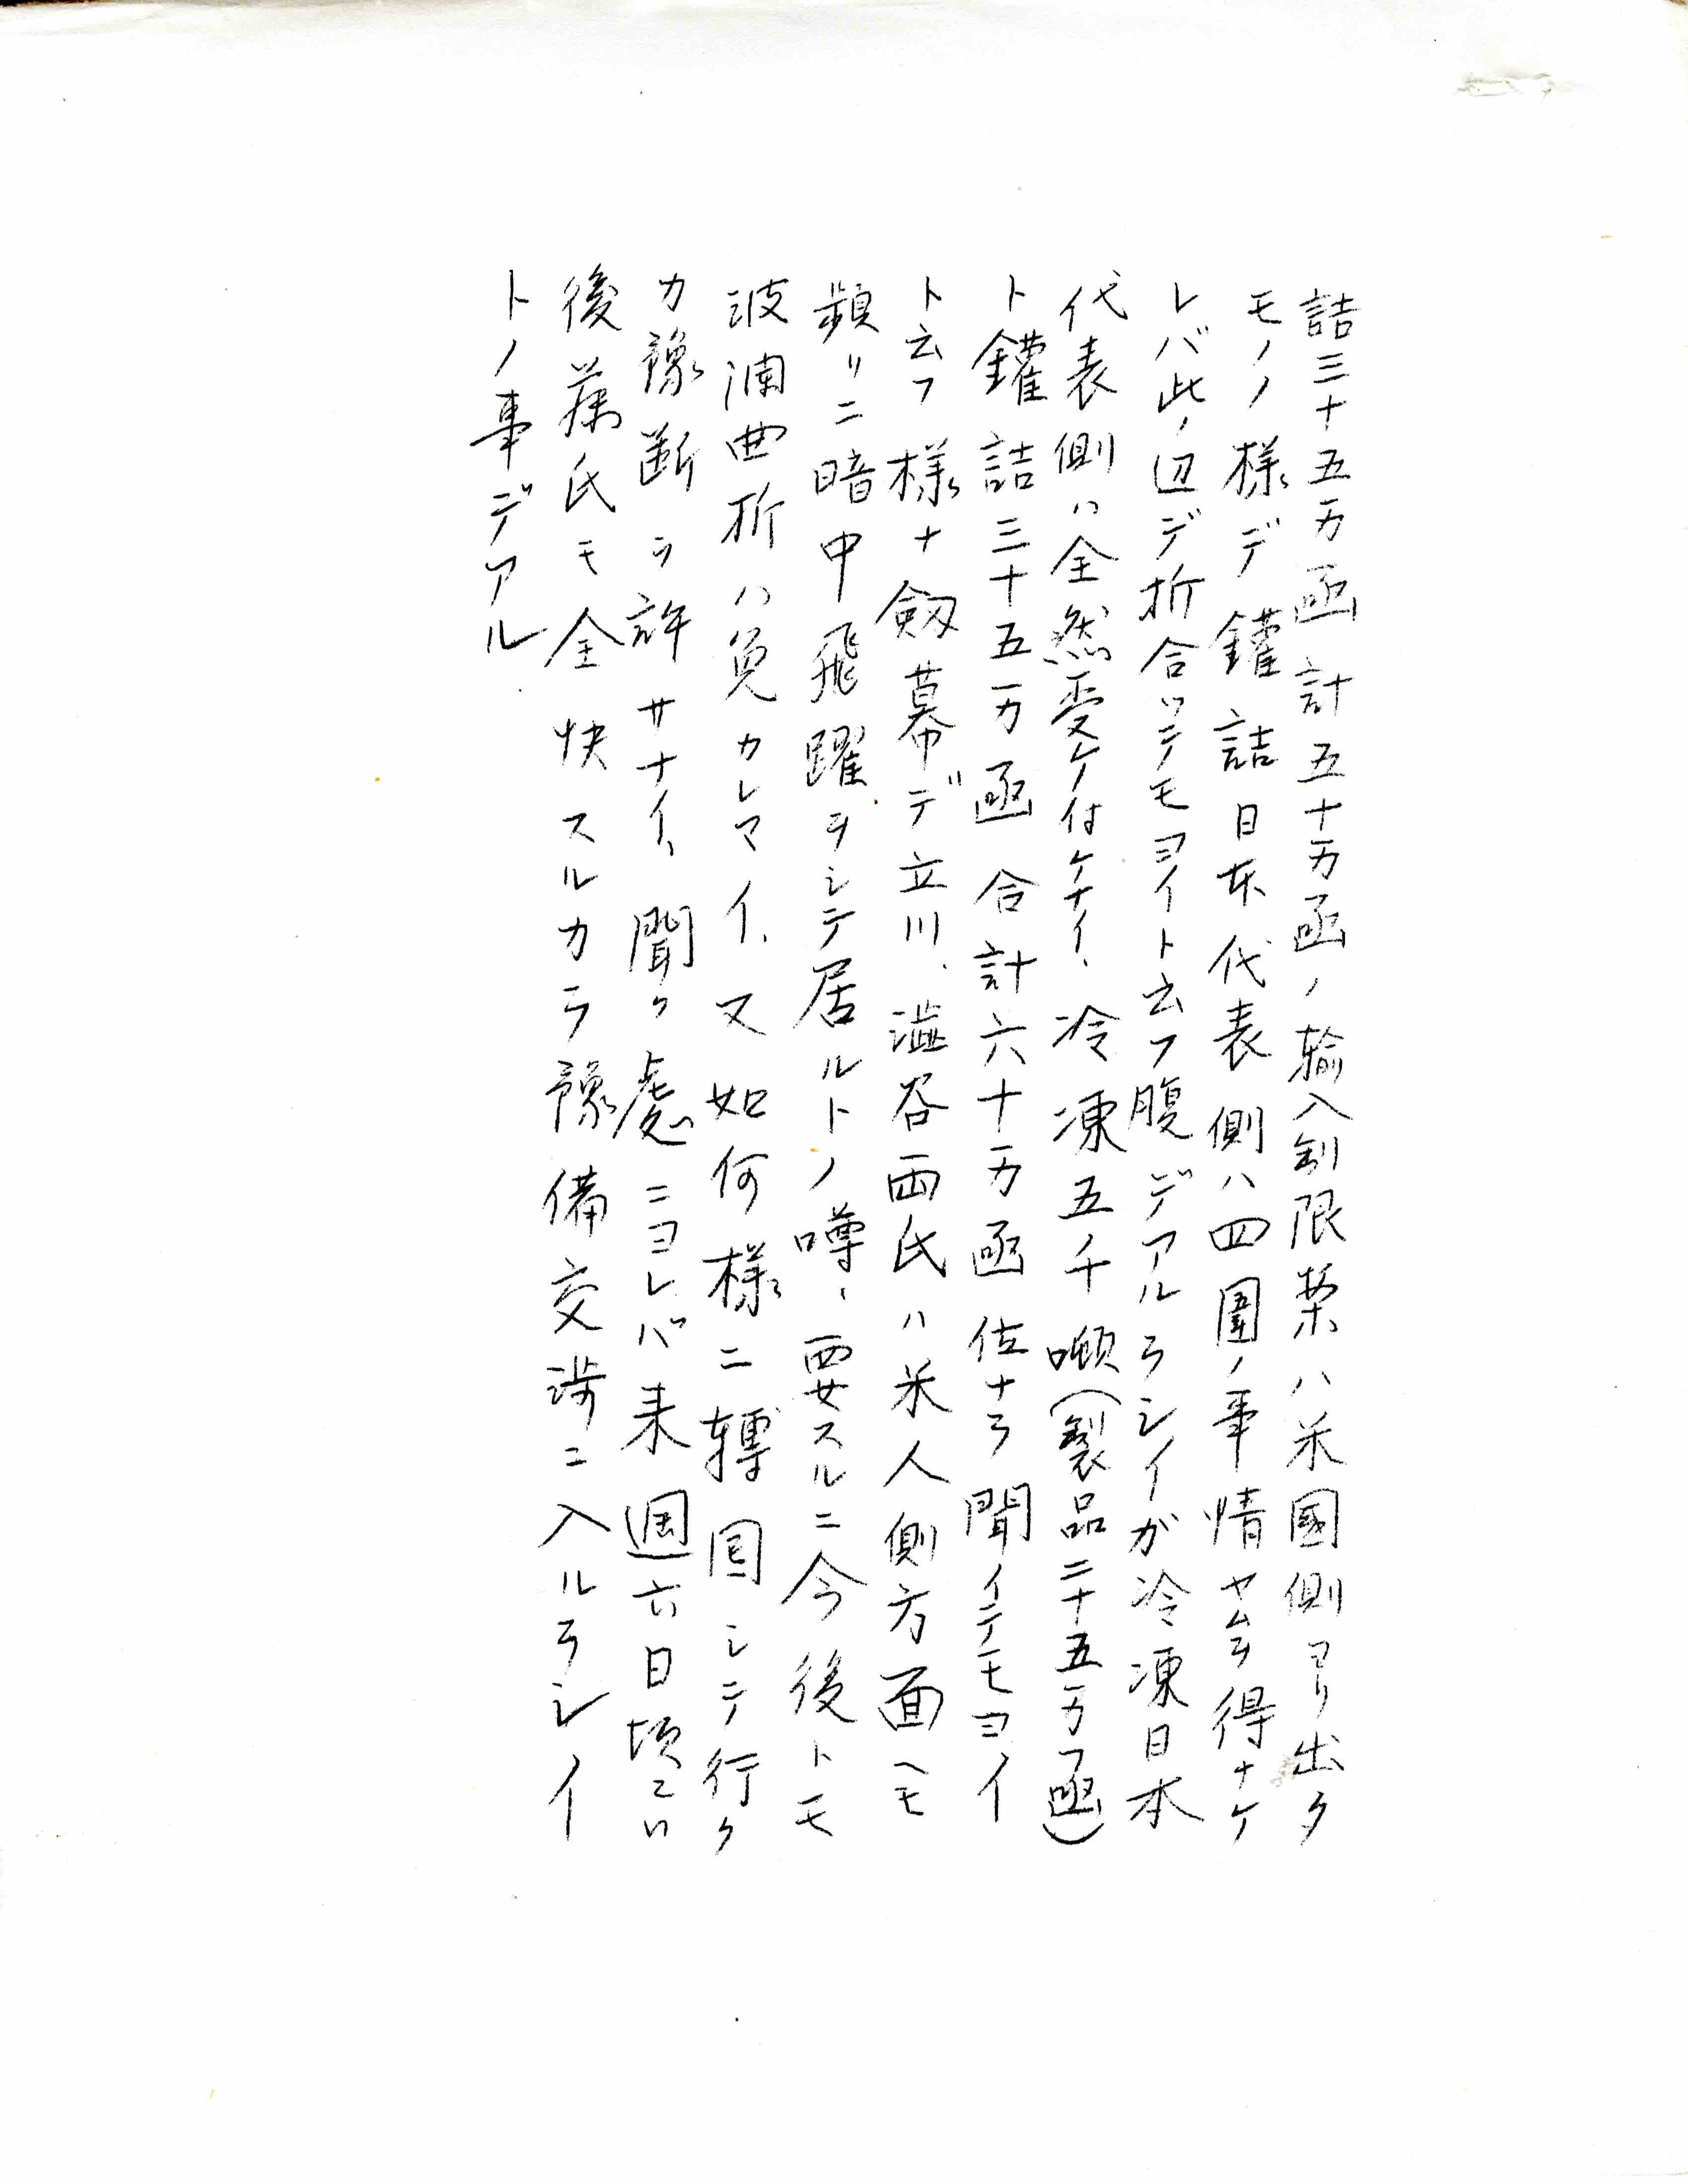 詰三十五万函計五十万函ノ輸入制限案ハ米國側ヨリ出タ
モノノ様デ鑵詰日本代表側ハ四圍ノ事情ヤムヲ得ナケ
レバ此ノ辺デ折合ツテモヨイト云フ腹デアルラシイガ冷凍日本
代表側ハ全然受ケ付ケナイ、冷凍五千噸(製品二十五万函)
ト鑵詰三十五万函合計六十万函位ナラ聞イテモヨイ
ト云フ様ナ劔幕デ立川、澁谷両氏ハ米人側方面ヘモ
頻リニ暗中飛躍ヲシテ居ルトノ噂、要スルニ今後トモ
波瀾曲折ハ免カレマイ、又如何様ニ轉囘シテ行ク
カ豫断ヲ許サナイ、聞ク處ニヨレバ来週六日頃ニハ
後藤氏モ全快スルカラ豫備交渉ニ入ルラシイ
トノ事デアル